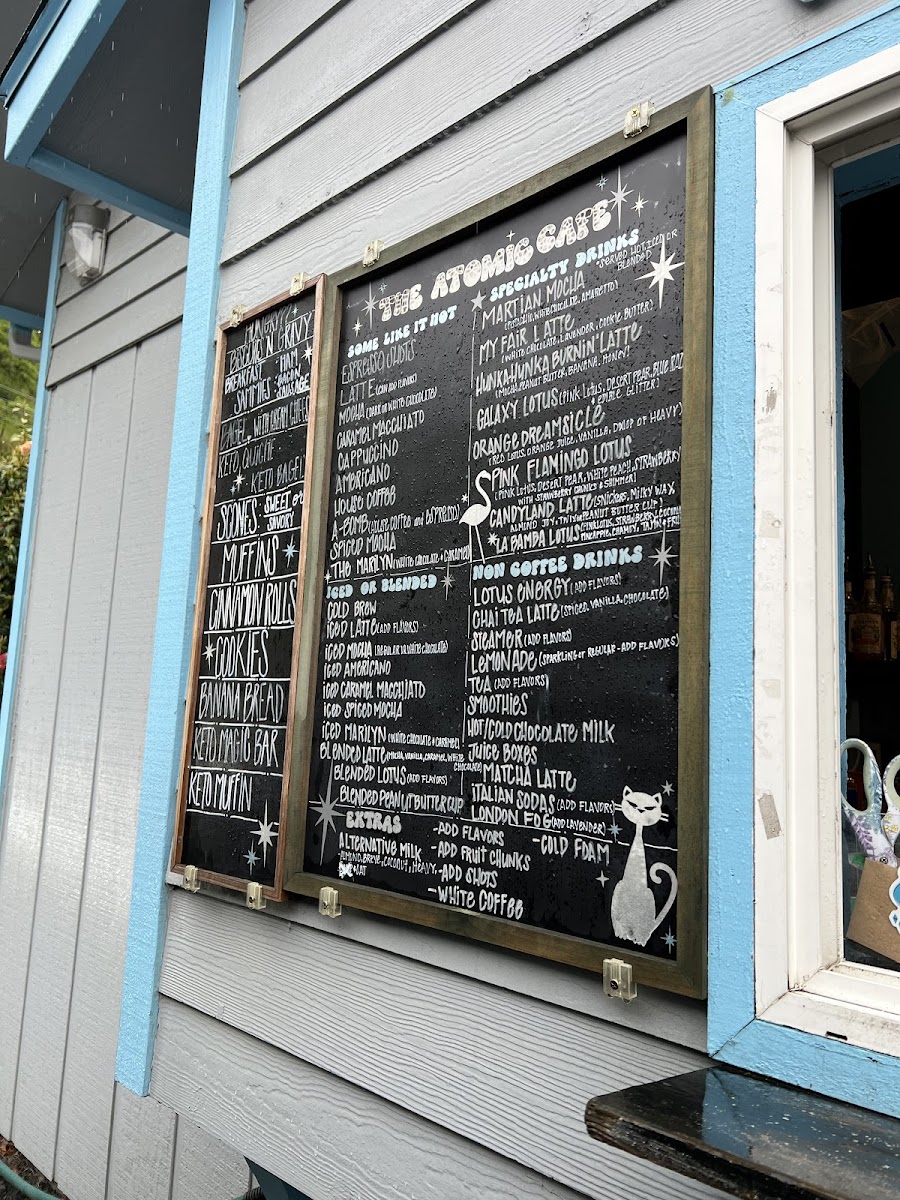 HUNGRY?
BISCUITS 'N GRAVY
BREAKFAST SAMMIES
- HAM
- BACON
- SAUSAGE
BAGEL WITH CREAM CHEESE
KETO QUICHE
KETO BAGEL
SCONES: SWEET or SAVORY
MUFFINS
CINNAMON ROLLS
COOKIES
BANANA BREAD
KETO MAGIC BAR
KETO MUFFIN
THE ATOMIC CAFE
SOME LIKE IT HOT
ESPRESSO SHOTS
LATTE (CAN ADD FLAVORS)
MOCHA (DARK OR WHITE CHOCOLATE)
CARAMEL MACCHIATO
CAPPUCCINO
AMERICANO
HOUSE COFFEE
A-BOMB (HOUSE COFFEE and ESPRESSO)
SPICED MOCHA
THE MARILYN (WHITE CHOCOLATE + CARAMEL)
ICED OR BLENDED
COLD BREW
ICED LATTE (ADD FLAVORS)
ICED MOCHA (REGULAR or WHITE CHOCOLATE)
ICED AMERICANO
ICED CARAMEL MACCHIATO
ICED SPICED MOCHA
ICED MARILYN (WHITE CHOCOLATE + CARAMEL)
BLENDED LATTE (MOCHA, VANILLA, CARAMEL, WHITE CHOCOLATE)
BLENDED LOTUS (ADD FLAVORS)
BLENDED PEANUT BUTTER CUP
SPECIALTY DRINKS
*SERVED HOT, ICED OR BLENDED
MARTIAN MOCHA
(PISTACHIO, WHITE CHOCOLATE, AMARETTO)
MY FAIR LATTE
(WHITE CHOCOLATE, LAVENDER, COOKIE BUTTER)
HUNKA HUNKA BURNIN' LATTE
(MOCHA, PEANUT BUTTER, BANANA, HONEY)
GALAXY LOTUS (PINK LOTUS, DESERT PEAR, BLUE RAZZ + EDIBLE GLITTER)
ORANGE DREAMSICLE
(RED LOTUS, ORANGE JUICE, VANILLA, DROP OF HEAVY)
PINK FLAMINGO LOTUS
(PINK LOTUS, DESERT PEAR, WHITE PEACH, STRAWBERRY
WITH STRAWBERRY CHUNKS & SHIMMER)
CANDYLAND LATTE (SNICKERS, MILKY WAY,
ALMOND JOY, TWIX, PEANUT BUTTER CUP)
LA BAMBA LOTUS (PINK LOTUS, STRAWBERRY, COCONUT,
PINEAPPLE, CHAMOY, TAJIN + FRUIT)
NON COFFEE DRINKS
LOTUS ENERGY (ADD FLAVORS)
CHAI TEA LATTE (SPICED, VANILLA, CHOCOLATE)
STEAMER (ADD FLAVORS)
LEMONADE (SPARKLING or REGULAR - ADD FLAVORS)
TEA (ADD FLAVORS)
SMOOTHIES
HOT/COLD CHOCOLATE MILK
JUICE BOXES
MATCHA LATTE
ITALIAN SODAS (ADD FLAVORS)
LONDON FOG (ADD LAVENDER)
EXTRAS
ALTERNATIVE MILK
-ALMOND, BREVE, COCONUT, HEAVY,
OAT
-ADD FLAVORS
-ADD FRUIT CHUNKS
-ADD SHOTS
-WHITE COFFEE
-COLD FOAM